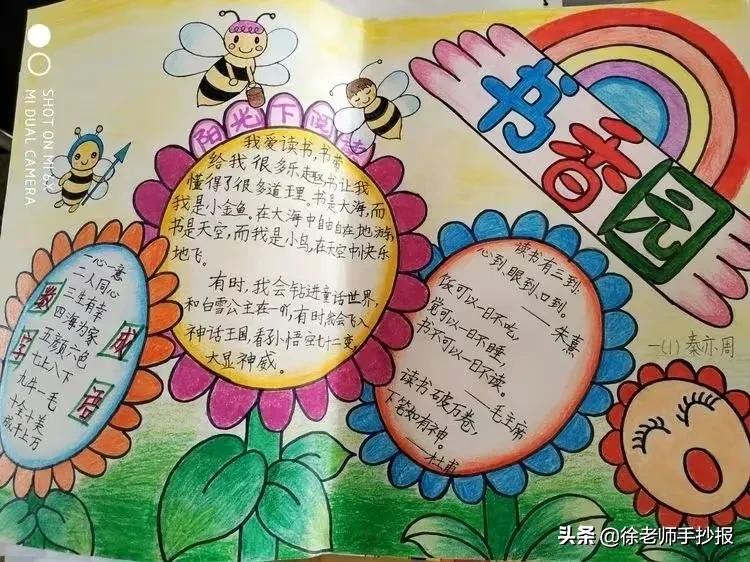 SHOT ON MI 6X
MI DUAL CAMERA
书香园
阳光下阅读
我爱读书,书带
给我很多乐趣,书让我
懂得了很多道理。书是大海,而
我是小金鱼。在大海中自由自在地游,
书是天空,而我是小鸟,在天空中快乐
地飞。
有时,我会钻进童话世界,
和白雪公主在一听,有时就会飞入
神话王国,看孙悟空七十二变,
大显神威。
数字成语
一心一意
二人同心
三生有幸
四海为家
五颜六色
七上八下
九牛一毛
十全十美
成千上万
读书有三到:
心到、眼到、口到。
——朱熹
饭可以一日不吃,
觉可以一日不睡,
书不可以一日不读。
——毛主席
读书破万卷,
下笔如有神。
——杜甫
一(1) 秦亦周
头条 @徐老师手抄报